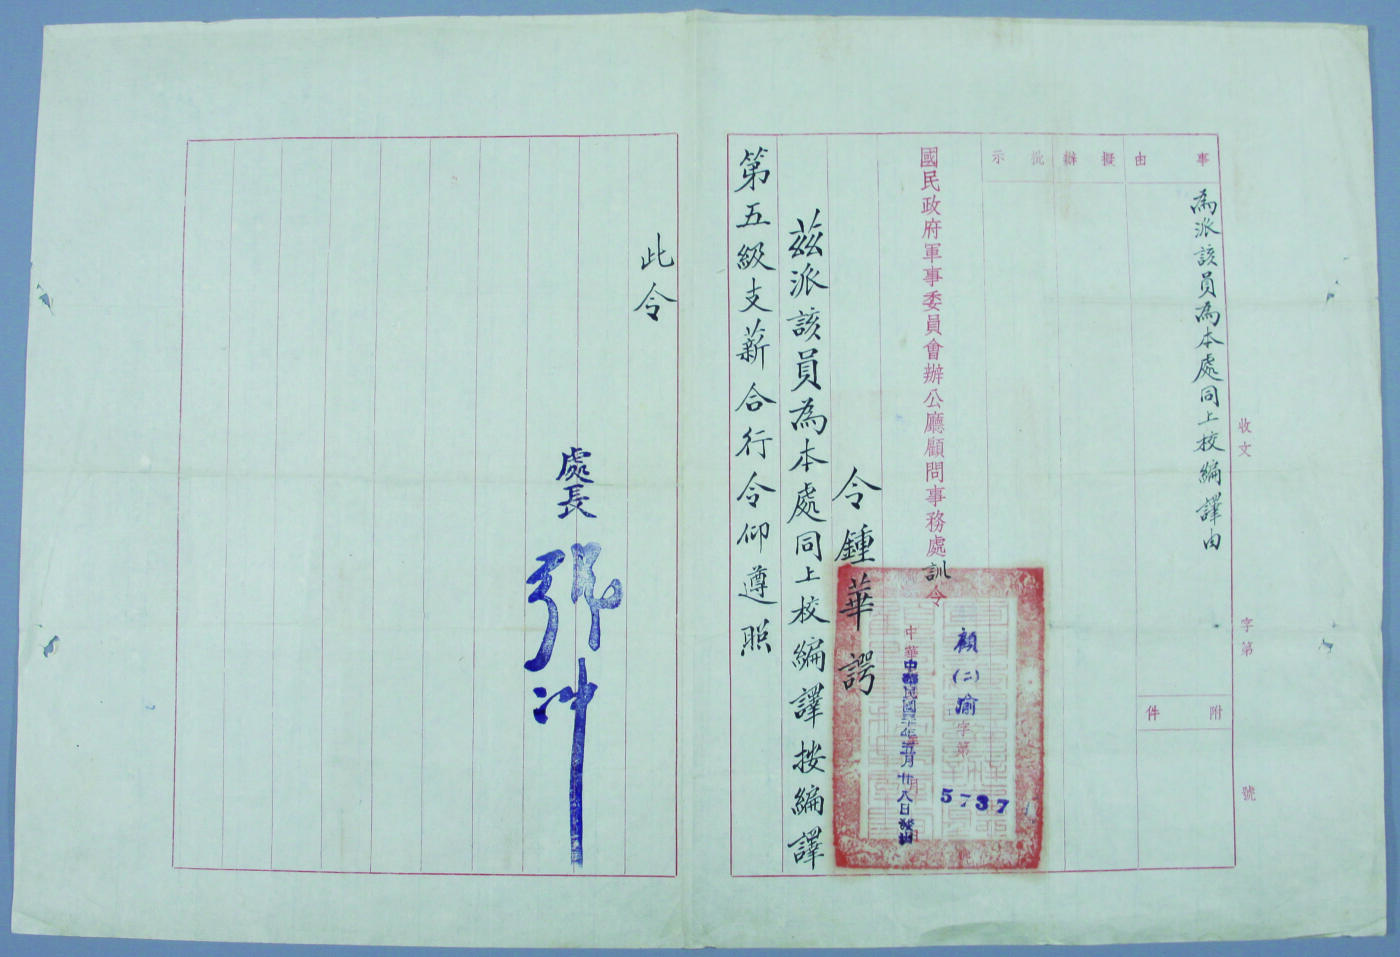 收文 字第 號
事由
為派該員為本處同上校編譯由
附件
擬辦
批示
國民政府軍事委員會辦公廳顧問事務處訓令
顧(二)渝字第5737
中華民國三十年五月廿八日發出
令鍾華諤
茲派該員為本處同上校編譯按編譯
第五級支薪合行令仰遵照
此令
處長
張冲